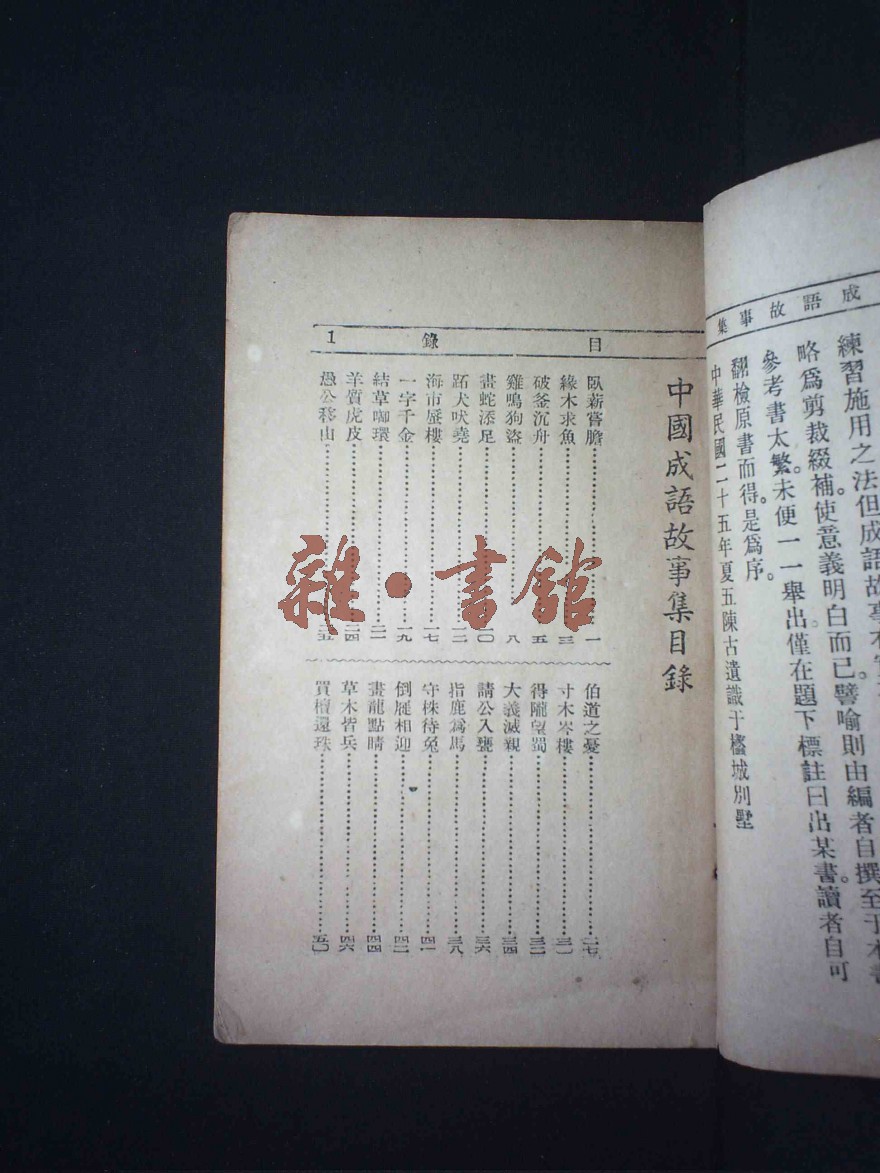 成語故事集
練習施用之法但成語故事
略為剪裁綴補使意義明白而已。譬喻則由編者自撰至于本書
參考書太繁。未便一一舉出僅在題下標註曰出某書。讀者自可
翻檢原書而得。是為序。
中華民國二十五年夏五陳古遺識于檻城別墅
目錄 1
中國成語故事集目錄
臥薪嘗膽 一
緣木求魚 三
破釜沉舟 五
雞鳴狗盜 八
畫蛇添足 一〇
跖犬吠堯 一二
海市蜃樓 一七
一字千金 一九
結草啣環 二一
羊質虎皮 二四
愚公移山 二五
伯道之憂 二七
寸木岑樓 三一
得隴望蜀 三二
大義滅親 三四
請公入甕 三六
指鹿為馬 三八
守株待兔 四一
倒屣相迎 四二
畫龍點睛 四四
草木皆兵 四六
買櫝還珠 五〇
雜·書館